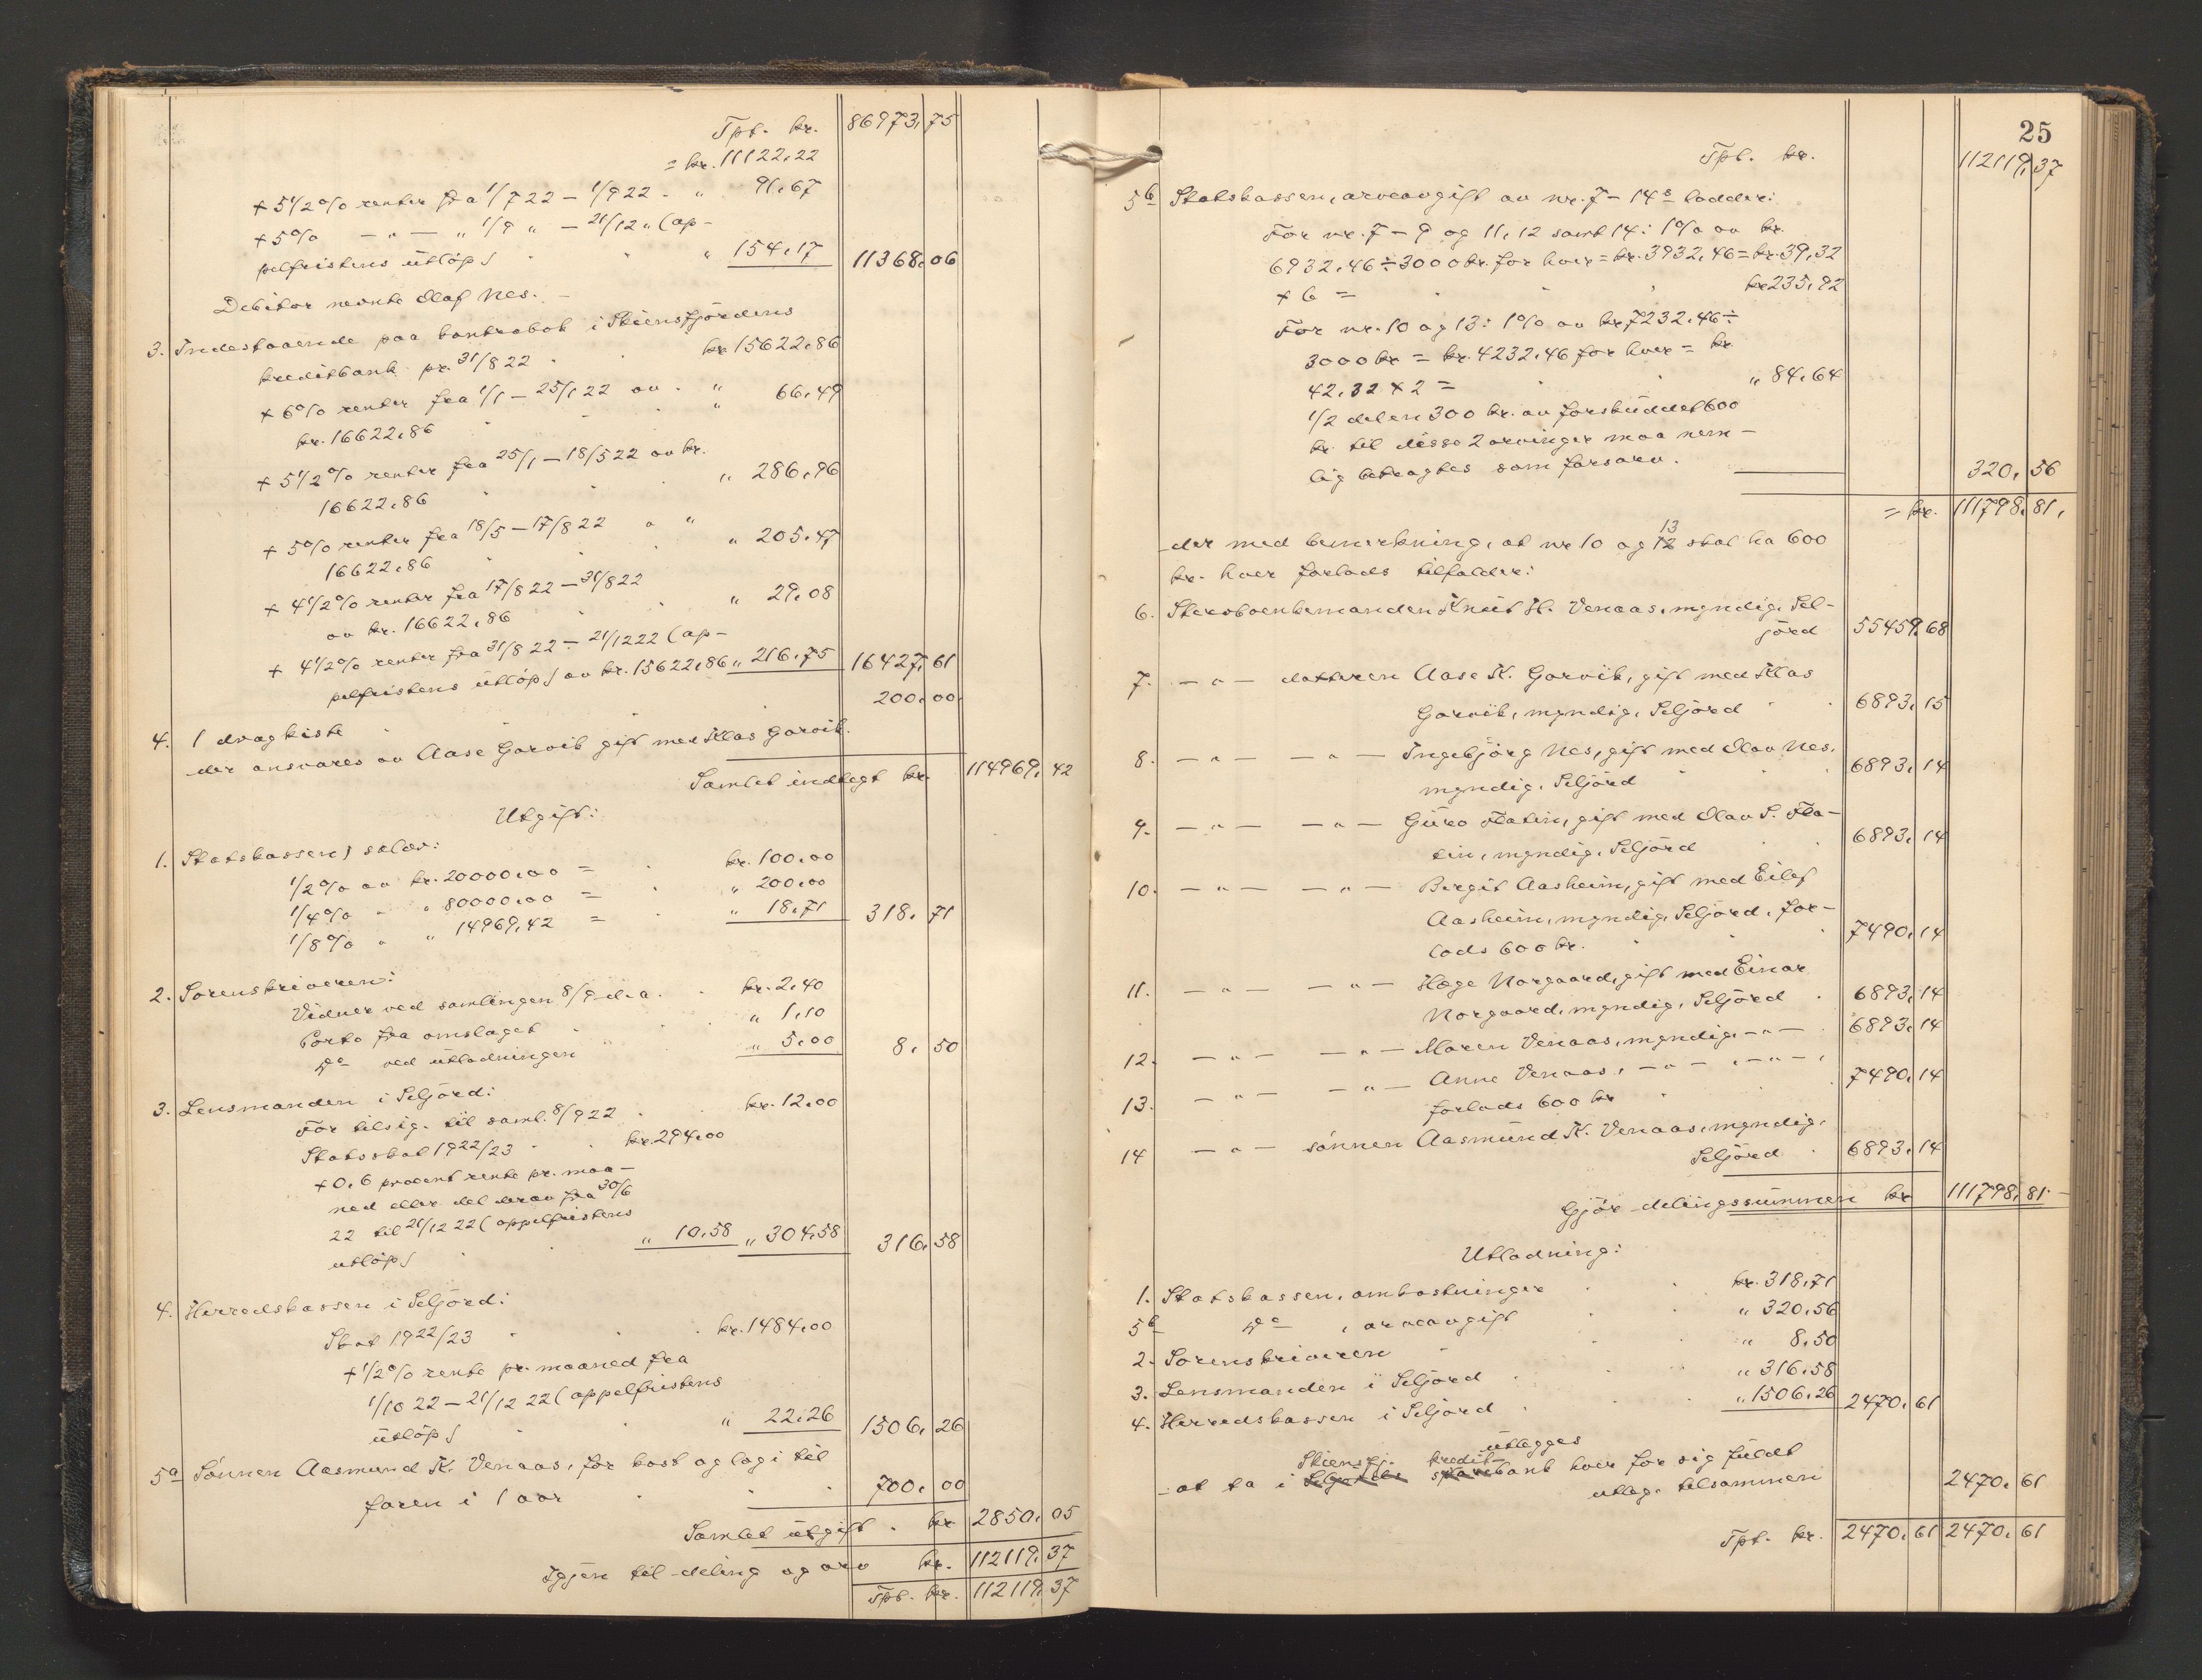 Tpt. kr. 86973,75
= kr. 11122,22
+ 5 1/2 % renter fra 1/7 22 – 1/9 22 . „ 91,67
+ 5 % – „ – „ 1/9 „ – 21/12 „ (ap-
pelfristens utløp) „ 154,17 11368,06
Debitor nevnte Olaf Nes. –
3. Indestaaende paa kontrabok i Skiensfjordens
kreditbank pr. 31/8 22 kr. 15622,86
+ 6 % renter fra 1/1 – 25/1 22 av . „ 66,49
kr. 16622,86 „
+ 5 1/2 % renter fra 25/1 – 18/5 22 av kr.
16622,86 „ 286,96
+ 5 % renter fra 18/5 – 17/8 22 „ „
16622,86 „ 205,47
+ 4 1/2 % renter fra 17/8 22 – 31/8 22
av kr. 16622,86 „ 29,08
+ 4 1/2 % renter fra 31/8 22 – 21/12 22 (ap-
pelfristens utløp) av kr. 15622,86 „ 216,75 16427,61
4. 1 dragkiste 200,00
der ansvares av Aase Garvik gift med Klas Garvik.
Samlet indtegt kr. 114969,42
Utgift:
1. Statskassen, salær:
1/2 % av kr. 20000,00 = kr. 100,00
1/4 % „ „ 80000,00 = „ 200,00
1/8 % „ „ 14969,42 = „ 18,71 318,71
2. Sorenskriveren:
Vidner ved samlingen 8/9 d. a. kr. 2,40
Porto fra omslaget „ 1,10
do ved utlodningen „ 5,00 8,50
3. Lensmanden i Seljord:
For tilsig. til saml. 8/9 22 kr. 12,00
Statsskat 1922/23 kr. 294,00
+ 0,6 procent rente pr. maa-
ned eller del derav fra 30/6
22 til 21/12 22 (appelfristens
utløp) „ 10,58 „ 304,58 316,58
4. Herredskassen i Seljord:
Skat 1922/23 kr. 1484,00
+ 1/2 % rente pr. maaned fra
1/10 22 – 21/12 22 (appelfristens
utløp) „ 22,26 1506,26
5a Sønnen Aasmund K. Venaas, for kost og logi til
faren i 1 aar 700,00
Samlet utgift . kr 2850,05
Igjen til deling og arv kr. 112119,37
Tpt. kr. 112119,37
25
Tpt. kr. 112119,37
5b Statskassen, arveavgift av nr. 7 – 14s lodder:
For nr. 7 – 9 og 11, 12 samt 14: 1 % av kr.
6932,46 ÷ 3000 kr. for hver = kr. 3932,46 = kr. 39,32
+ 6 = kr 235,92
For nr. 10 og 13: 1 % av kr. 7232,46 ÷
3000 kr = kr. 4232,46 for hver = kr.
42,32 + 2 = „ 84,64
1/2 delen 300 kr. av forskuddet 600
kr. til disse 2 arvinger maa nem-
lig betragtes som farsarv. 320,56
= kr. 111798,81,
13
– der med bemerkning, at nr 10 og 12 skal ha 600
kr. hver forlods tilfalder:
6. Stervboenkemanden Knut H. Venaas, myndig, Sel-
jord 55459,68
7. – „ – datteren Aase K. Garvik, gift med Klas
Garvik, myndig, Seljord 6893,15
8. – „ – – „ – Ingebjørg Nes, gift med Olav Nes,
myndig, Seljord 6893,14
9. – „ – – „ – Guro Flatin, gift med Olav S. Fla-
tin, myndig, Seljord 6893,14
10. – „ – – „ – Bergit Aasheim, gift med Eilef
Aasheim, myndig, Seljord, for-
lods 600 kr. 7490,14
11. – „ – – „ – Hæge Norgaard, gift med Einar
Norgaard, myndig, Seljord 6893,14
12. – „ – – „ – Maren Venaas, myndig, – „ – 6893,14
13. – „ – – „ – Anne Venaas, – „ – , – „ – ,
forlods 600 kr 7490,14
14 – „ – sønnen Aasmund K. Venaas, myndig,
Seljord 6893,14
Gjør delingssummen kr 111798,81
Utlodning:
1. Statskassen, omkostninger kr. 318,71
5b do , arveavgift „ 320,56
2. Sorenskriveren „ 8,50
3. Lensmanden i Seljord „ 316,58
4. Herredskassen i Seljord „ 1506,26 2470,61
utlegges
Skiensfj. kredit-
– at ta i sparebank hver for sig fuldt
utlæg, tilsammen 2470,61
Tpt. kr. 2470,61 2470,61